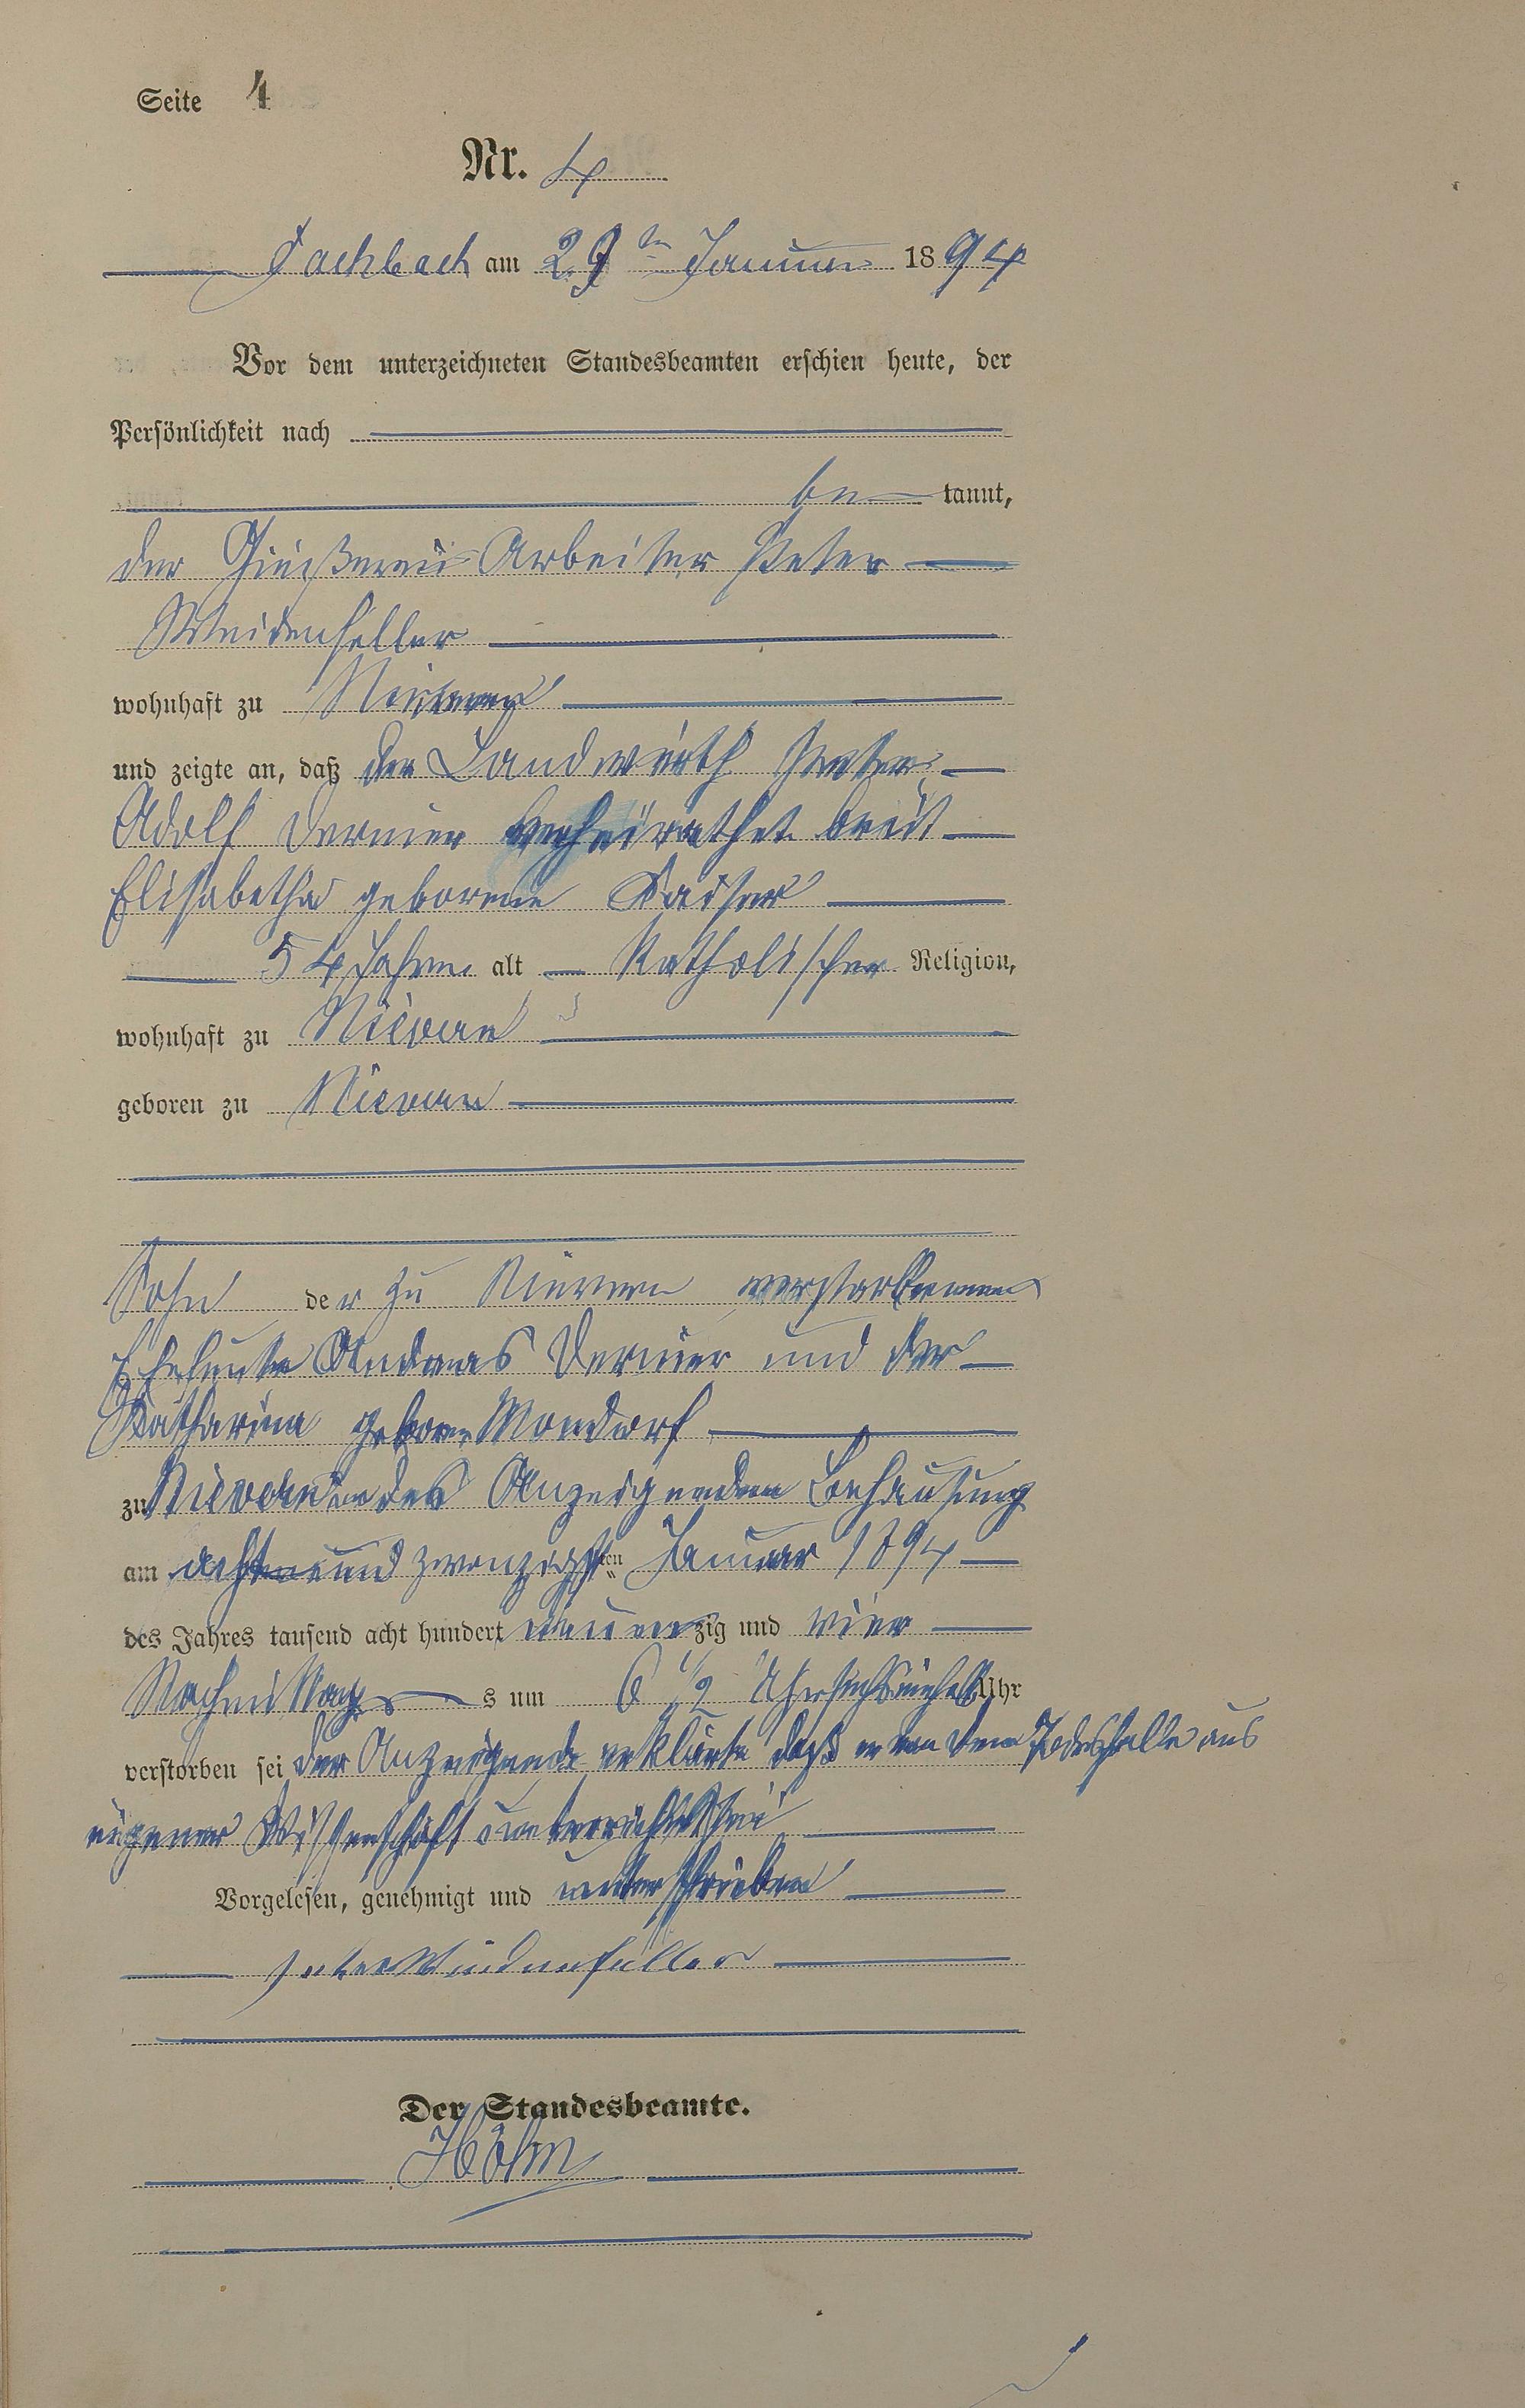 Seite 4
Nr. 4
Fachbach am 29ten Januar 1894
Vor dem unterzeichneten Standesbeamten erschien heute, der
Persönlichkeit nach
be kannt,
der Gießerei Arbeiter Peter
Weidenfeller
wohnhaft zu Nievern
und zeigte an, daß der Landwirth Peter
Adolf Vernier verheirathet
Elisabetha geborene Kaiser
54 Jahre alt Katholischer Religion,
wohnhaft zu Nievern
geboren zu Nievern
Sohn der zu Nievern verstorbenen
Eheleute Andreas Vernier und der
Katharina geborne Mondorf
zu Nievern in des Anzeigenden Behausung
am acht und zwanzigsten Januar 1894
des Jahres tausend acht hundert neunzig und vier
Nachmittags um 6 1/2 Uhr Uhr
verstorben sei der Anzeigende erklärte daß er von dem Todesfalle aus
eigener Wissenschaft unterrichtet sei
Vorgelesen, genehmigt und unterschrieben
Peter Weidenfeller
Der Standesbeamte.
Höhn